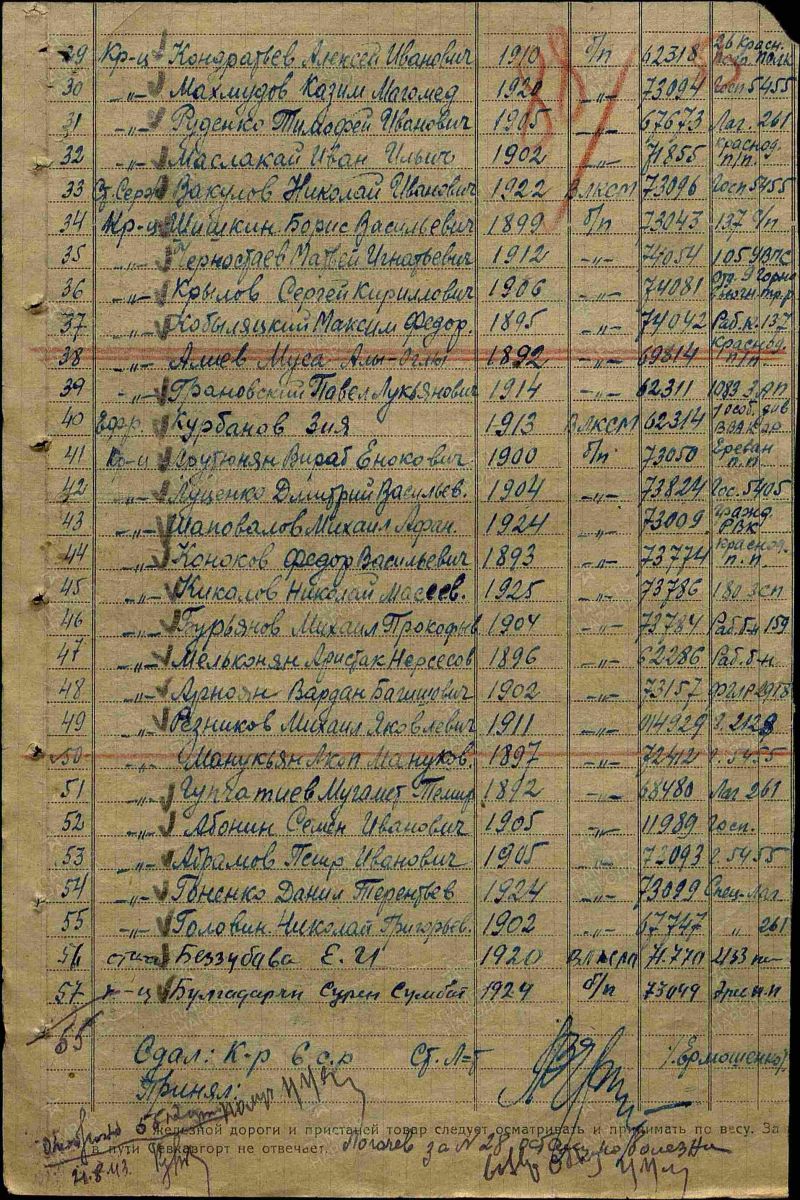 29 Кр-ц Кондратьев Алексей Иванович 1910 б/п 62318 26 Красн. полк
30 -„- Махмудов Казим Магомед 1920 -„- 73094 Госп 5455
31 -„- Руденко Тимофей Иванович 1905 -„- 67673 Лаг. 261
32 -„- Маслакай Иван Ильич 1902 -„- 71855 Краснод. п/п.
33 Ст. Серж Вакулов Николай Иванович 1922 ВЛКСМ 73096 Госп 5455
34 Кр-ц Шишкин Борис Васильевич 1899 б/п 73043 137
35 -„- Черностаев Матвей Игнатьевич 1912 -„- 74054 105 УВПС
36 -„- Крылов Сергей Кириллович 1906 -„- 74081
37 -„- Кобыляцкий Максим Федор. 1895 -„- 74042 Раб.к. 137
38 -„- Алиев Муса Алы-Оглы 1892 -„- 69814 Краснод. п/п.
39 -„- Грановский Павел Лукьянович 1914 -„- 62311 1083 ЗАП
40 Ефр. Курбанов Зия 1913 ВЛКСМ 62314 1 особ. див
41 Кр-ц Арутюнян Вираб Енокович 1900 б/п 73050 Ереван п.п.
42 -„- Луценко Дмитрий Васильев. 1904 -„- 73824 Гос. 5405
43 -„- Шаповалов Михаил Афан. 1924 -„- 73009 РВК
44 -„- Коноков Федор Васильевич 1893 -„- 73774 Краснод. п.п.
45 -„- Кикалов Николай Масеев. 1925 -„- 73786 180 ЗСП
46 -„- Бурьянов Михаил Прокофьв 1904 -„- 73784 Раб.б-н 159
47 -„- Мельконян Аристак Нерсесов 1896 -„- 62286 Раб. б-н
48 -„- Арноян Вардан Багишович 1902 -„- 73157
49 -„- Резников Михаил Яковлевич 1911 -„- 014929 г. 2128
50 -„- Шанукьян Акоп Мануков. 1897 -„- 72412 г. 5455
51 -„- Мугамет Темир 1892 -„- 68480 Лаг 261
52 -„- Абонин Семен Иванович 1905 -„- 11989 Госп.
53 -„- Абрамов Петр Иванович 1905 -„- 73093 г. 5455
54 -„- Гоненко Данил Терентьев 1924 -„- 73099 Спец-Лаг
55 -„- Головин Николай Григорьев. 1902 -„- 67747 „ 261
56 Беззубава Е. И 1920 ВЛКСМ 71.770
57 к-ц Булгадарян Сурен Сумбат 1924 б/п 73049 п.п
55
Сдал: К-р 6 с.р Ст. Л-т /Ермошенко/.
Принял:
железной дороги и пристаней товар следует осматривать и принимать по весу. За
в пути Севкавгорт не отвечает.
за N 28
21.8.43.